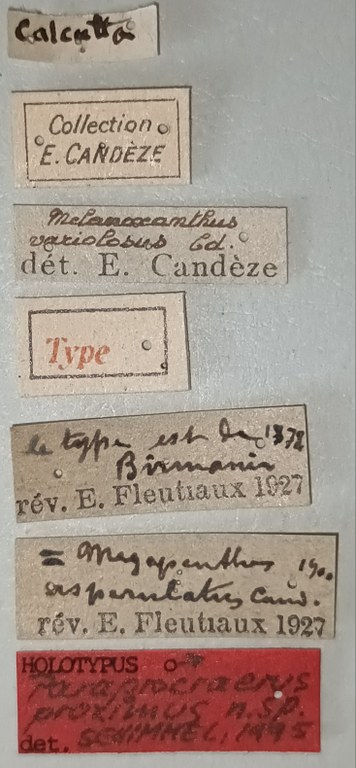 Calcutta
Collection
E. CANDÈZE
Melanoxanthus
variolosus Cd.
dét. E. Candèze
Type
le type est de 1878
Birmanie
rév. E. Fleutiaux 1927
= Megapenthes 1900
aspernatus Cand.
rév. E. Fleutiaux 1927
HOLOTYPUS ♂
Paraprocraerus
proximus n.sp.
det. SCHIMMEL, 1995